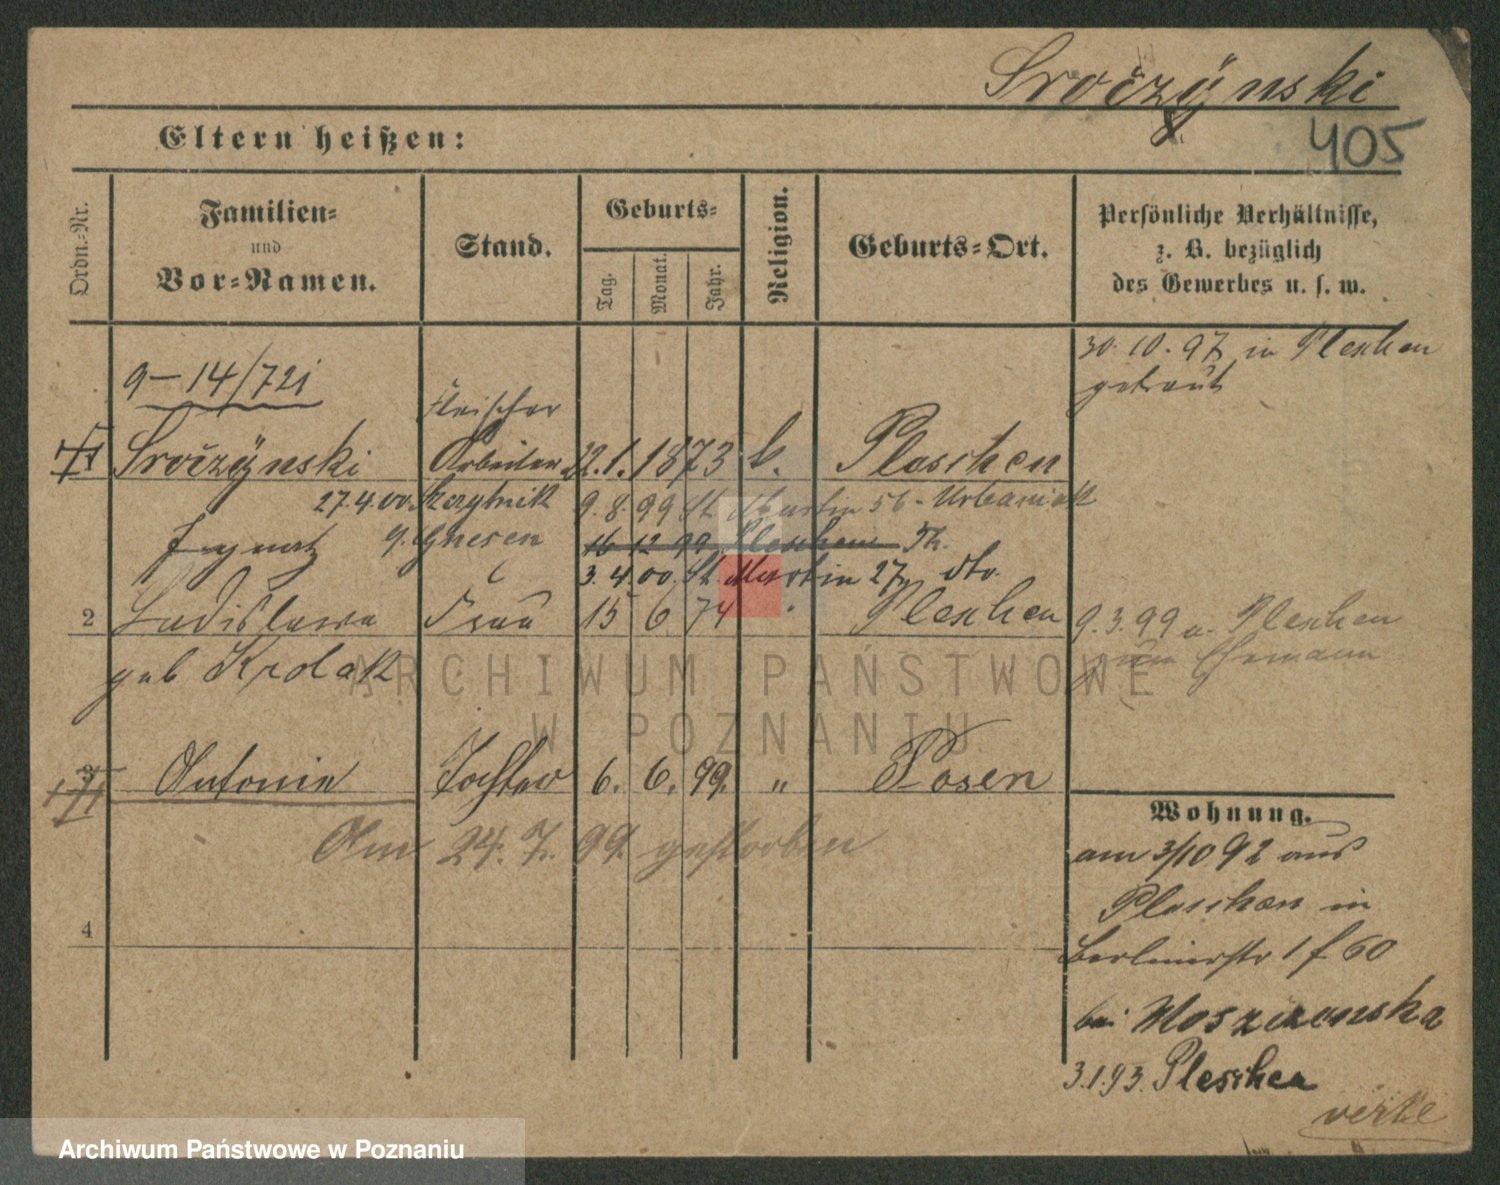 Sroczÿnski
405
Eltern heißen:
Ordn.-Nr.
Familien-
und
Vor-Namen.
Stand.
Geburts-
Tag.
Monat.
Jahr.
Religion.
Geburts-Ort.
Persönliche Verhältnisse,
z. B. bezüglich
des Gewerbes u. s. w.
30.10.97 in Pleschen
getraut
9-14/721
Fleischer
Sroczÿnski Arbeiter 22. 1. 1873 k. Pleschen
27.4.00. 9. 8. 99 St. Martin 56 - Urbaniak
Ignatz g. Gnesen 16 12 99 Pleschen
3. 4. 00. St. Martin 27 dto.
2 Ladislawa Frau 15 6 74 " Pleschen
9.3.99 a. Pleschen
zum Ehemann
geb Krolak
3 Antonie Tochter 6. 6. 99. " Posen
Am 24. 7. 99. gestorben
4
Wohnung.
am 3/10 92 aus
Pleschen in
Berlinerstr 1 f 60
bei
3.1.93. Pleschen
ARCHIWUM PAŃSTWOWE
W POZNANIU
Archiwum Państwowe w Poznaniu